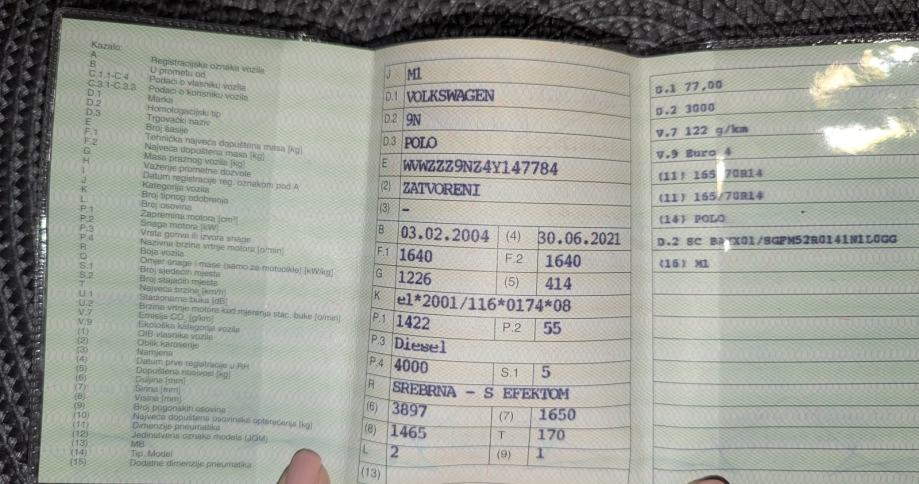 Kazalo:
A Registracijska oznaka vozila
B U prometu od
C.1.1-C.4 Podaci o vlasniku vozila
C.3.1-C.3.3 Podaci o korisniku vozila
D.1 Marka
D.2 Homologacijski tip
D.3 Trgovački naziv
E Broj šasije
F.1 Tehnička najveća dopuštena masa [kg]
F.2 Najveća dopuštena masa [kg]
G Masa praznog vozila [kg]
H Važenje prometne dozvole
I Datum registracije reg. oznakom pod A
J Kategorija vozila
K Broj tipnog odobrenja
L Broj osovina
P.1 Zapremina motora [cm³]
P.2 Snaga motora [kW]
P.3 Vrsta goriva ili izvora snage
P.4 Nazivna brzina vrtnje motora [o/min]
R Boja vozila
Q Omjer snage i mase (samo za motocikle) [kW/kg]
S.1 Broj sjedećih mjesta
S.2 Broj stajaćih mjesta
T Najveća brzina [km/h]
U.1 Stacionarna buka [dB]
U.2 Brzina vrtnje motora kod mjerenja stac. buke [o/min]
V.7 Emisija CO₂ [g/km]
V.9 Ekološka kategorija vozila
(1) OIB vlasnika vozila
(2) Oblik karoserije
(3) Namjena
(4) Datum prve registracije u RH
(5) Dopuštena nosivost [kg]
(6) Duljina [mm]
(7) Širina [mm]
(8) Visina [mm]
(9) Broj pogonskih osovina
(10) Najveće dopuštena osovinska opterećenja [kg]
(11) Dimenzije pneumatika
(12) Jedinstvena oznaka modela (JOM)
(13) MB
(14) Tip, Model
(15) Dodatne dimenzije pneumatika
J M1
D.1 VOLKSWAGEN
D.2 9N
D.3 POLO
E WVWZZZ9NZ4Y147784
(2) ZATVORENI
(3) -
B 03.02.2004 (4) 30.06.2021
F.1 1640 F.2 1640
G 1226 (5) 414
K e1*2001/116*0174*08
P.1 1422 P.2 55
P.3 Diesel
P.4 4000 S.1 5
R SREBRNA - S EFEKTOM
(6) 3897 (7) 1650
(8) 1465 T 170
L 2 (9) 1
(13)
U.1 77,00
U.2 3000
V.7 122 g/km
V.9 Euro 4
(11) 165/70R14
(11) 165/70R14
(14) POLO
D.2 SC
(16) M1